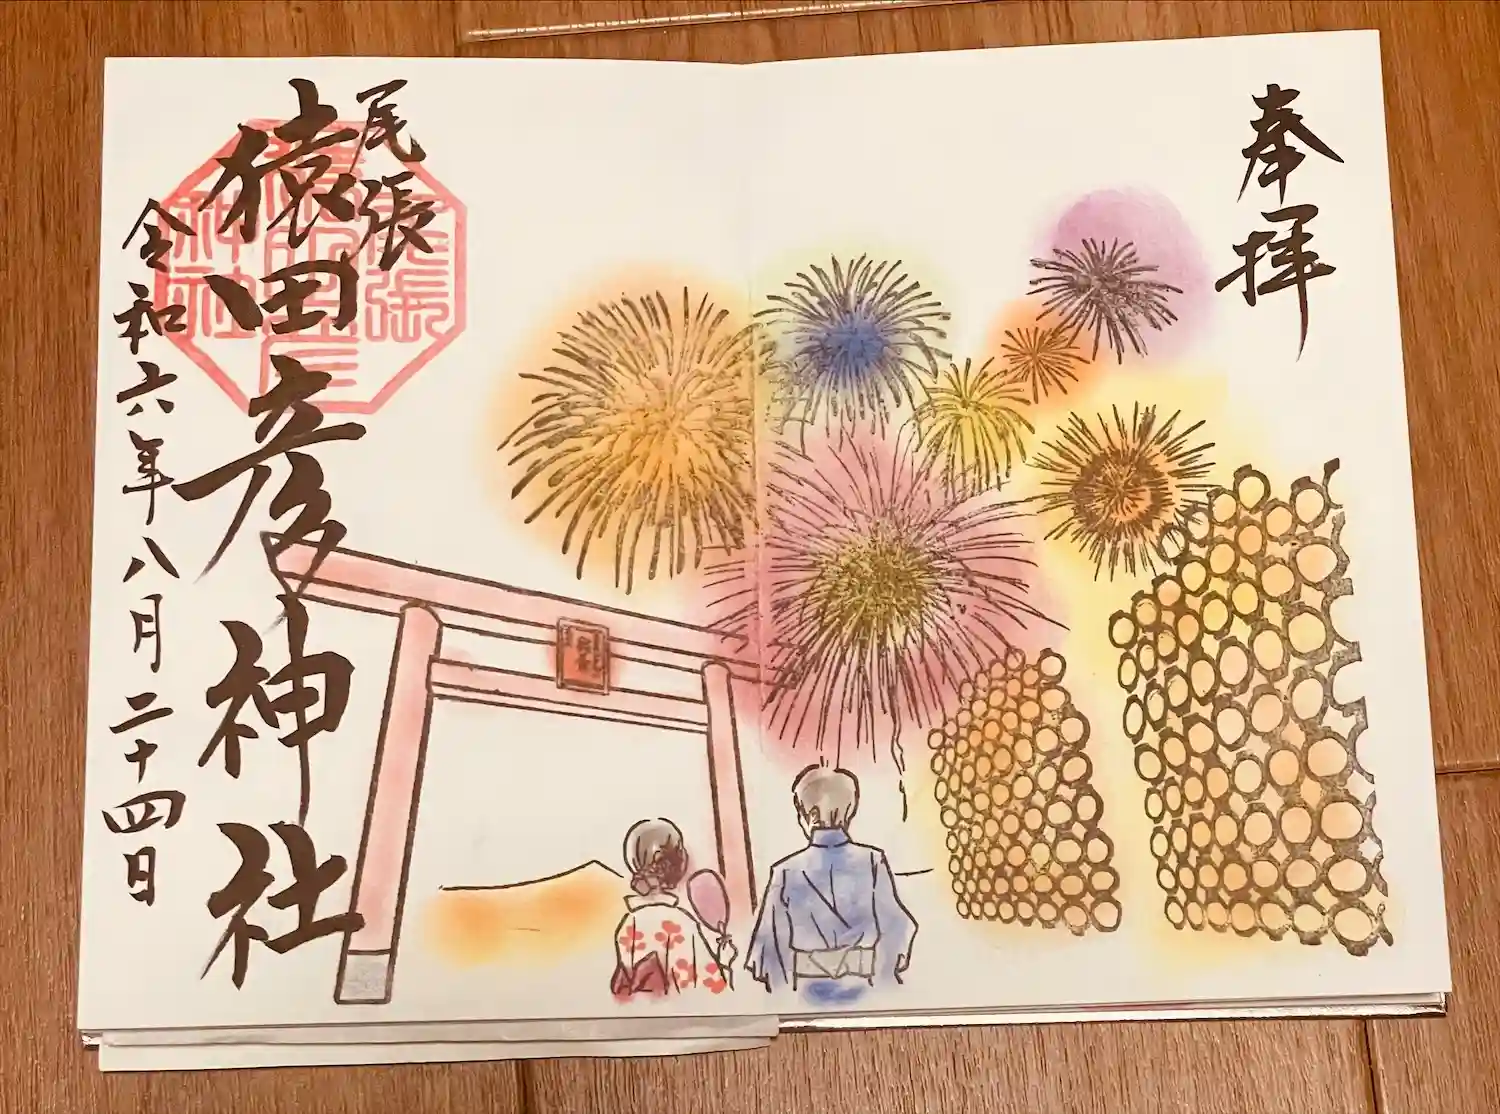 奉拝
尾張
猿田彦神社
令和六年八月二十四日
尾張
猿田彦
神社